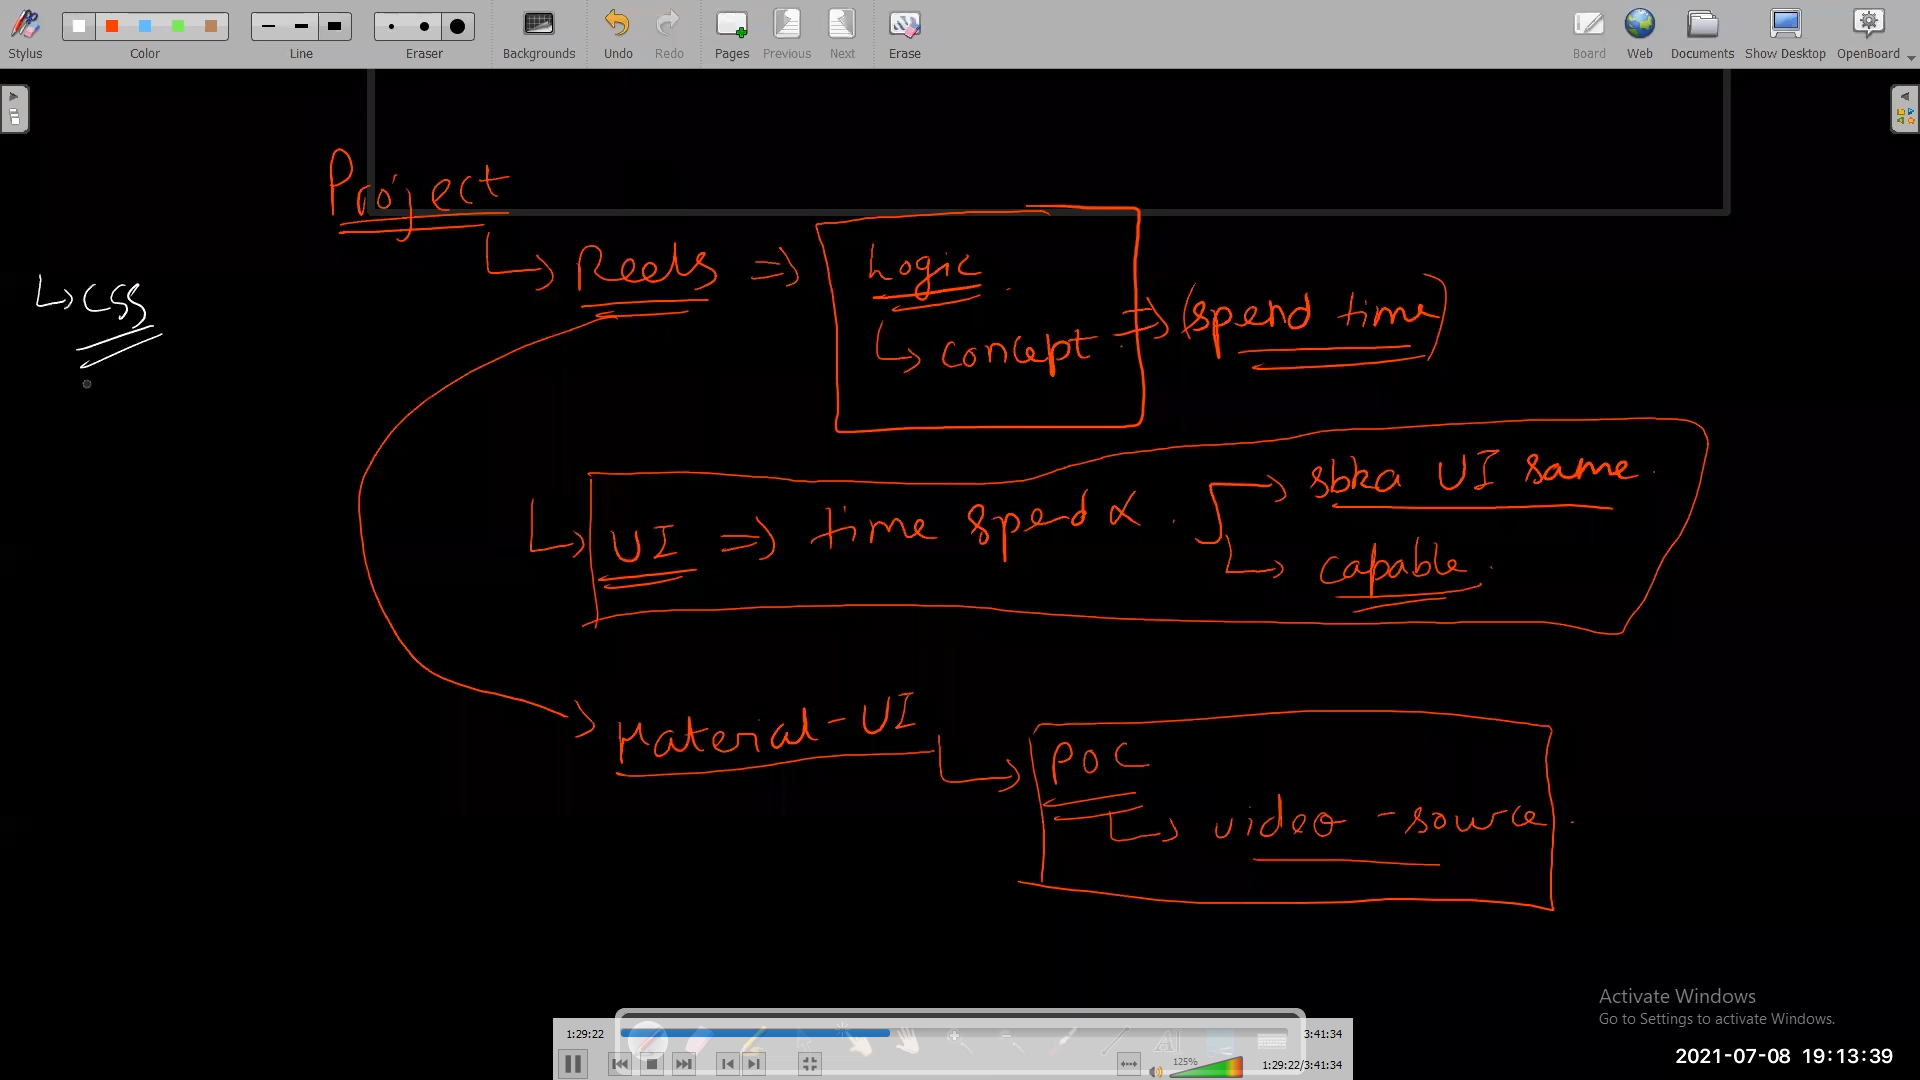 Stylus
Color
Line
Eraser
Backgrounds
Undo
Redo
Pages
Previous
Next
Erase
Board
Web
Documents
Show Desktop
OpenBoard
Project
↳ Reels ⇒ Logic
↳ concept ⇒ (spend time)
↳ CSS
↳ UI ⇒ time spend
→ sbka UI same
↳ capable
→ Material-UI
↳ POC
↳ video-source
Activate Windows
Go to Settings to activate Windows.
1:29:22
3:41:34
125%
1:29:22/3:41:34
2021-07-08 19:13:39